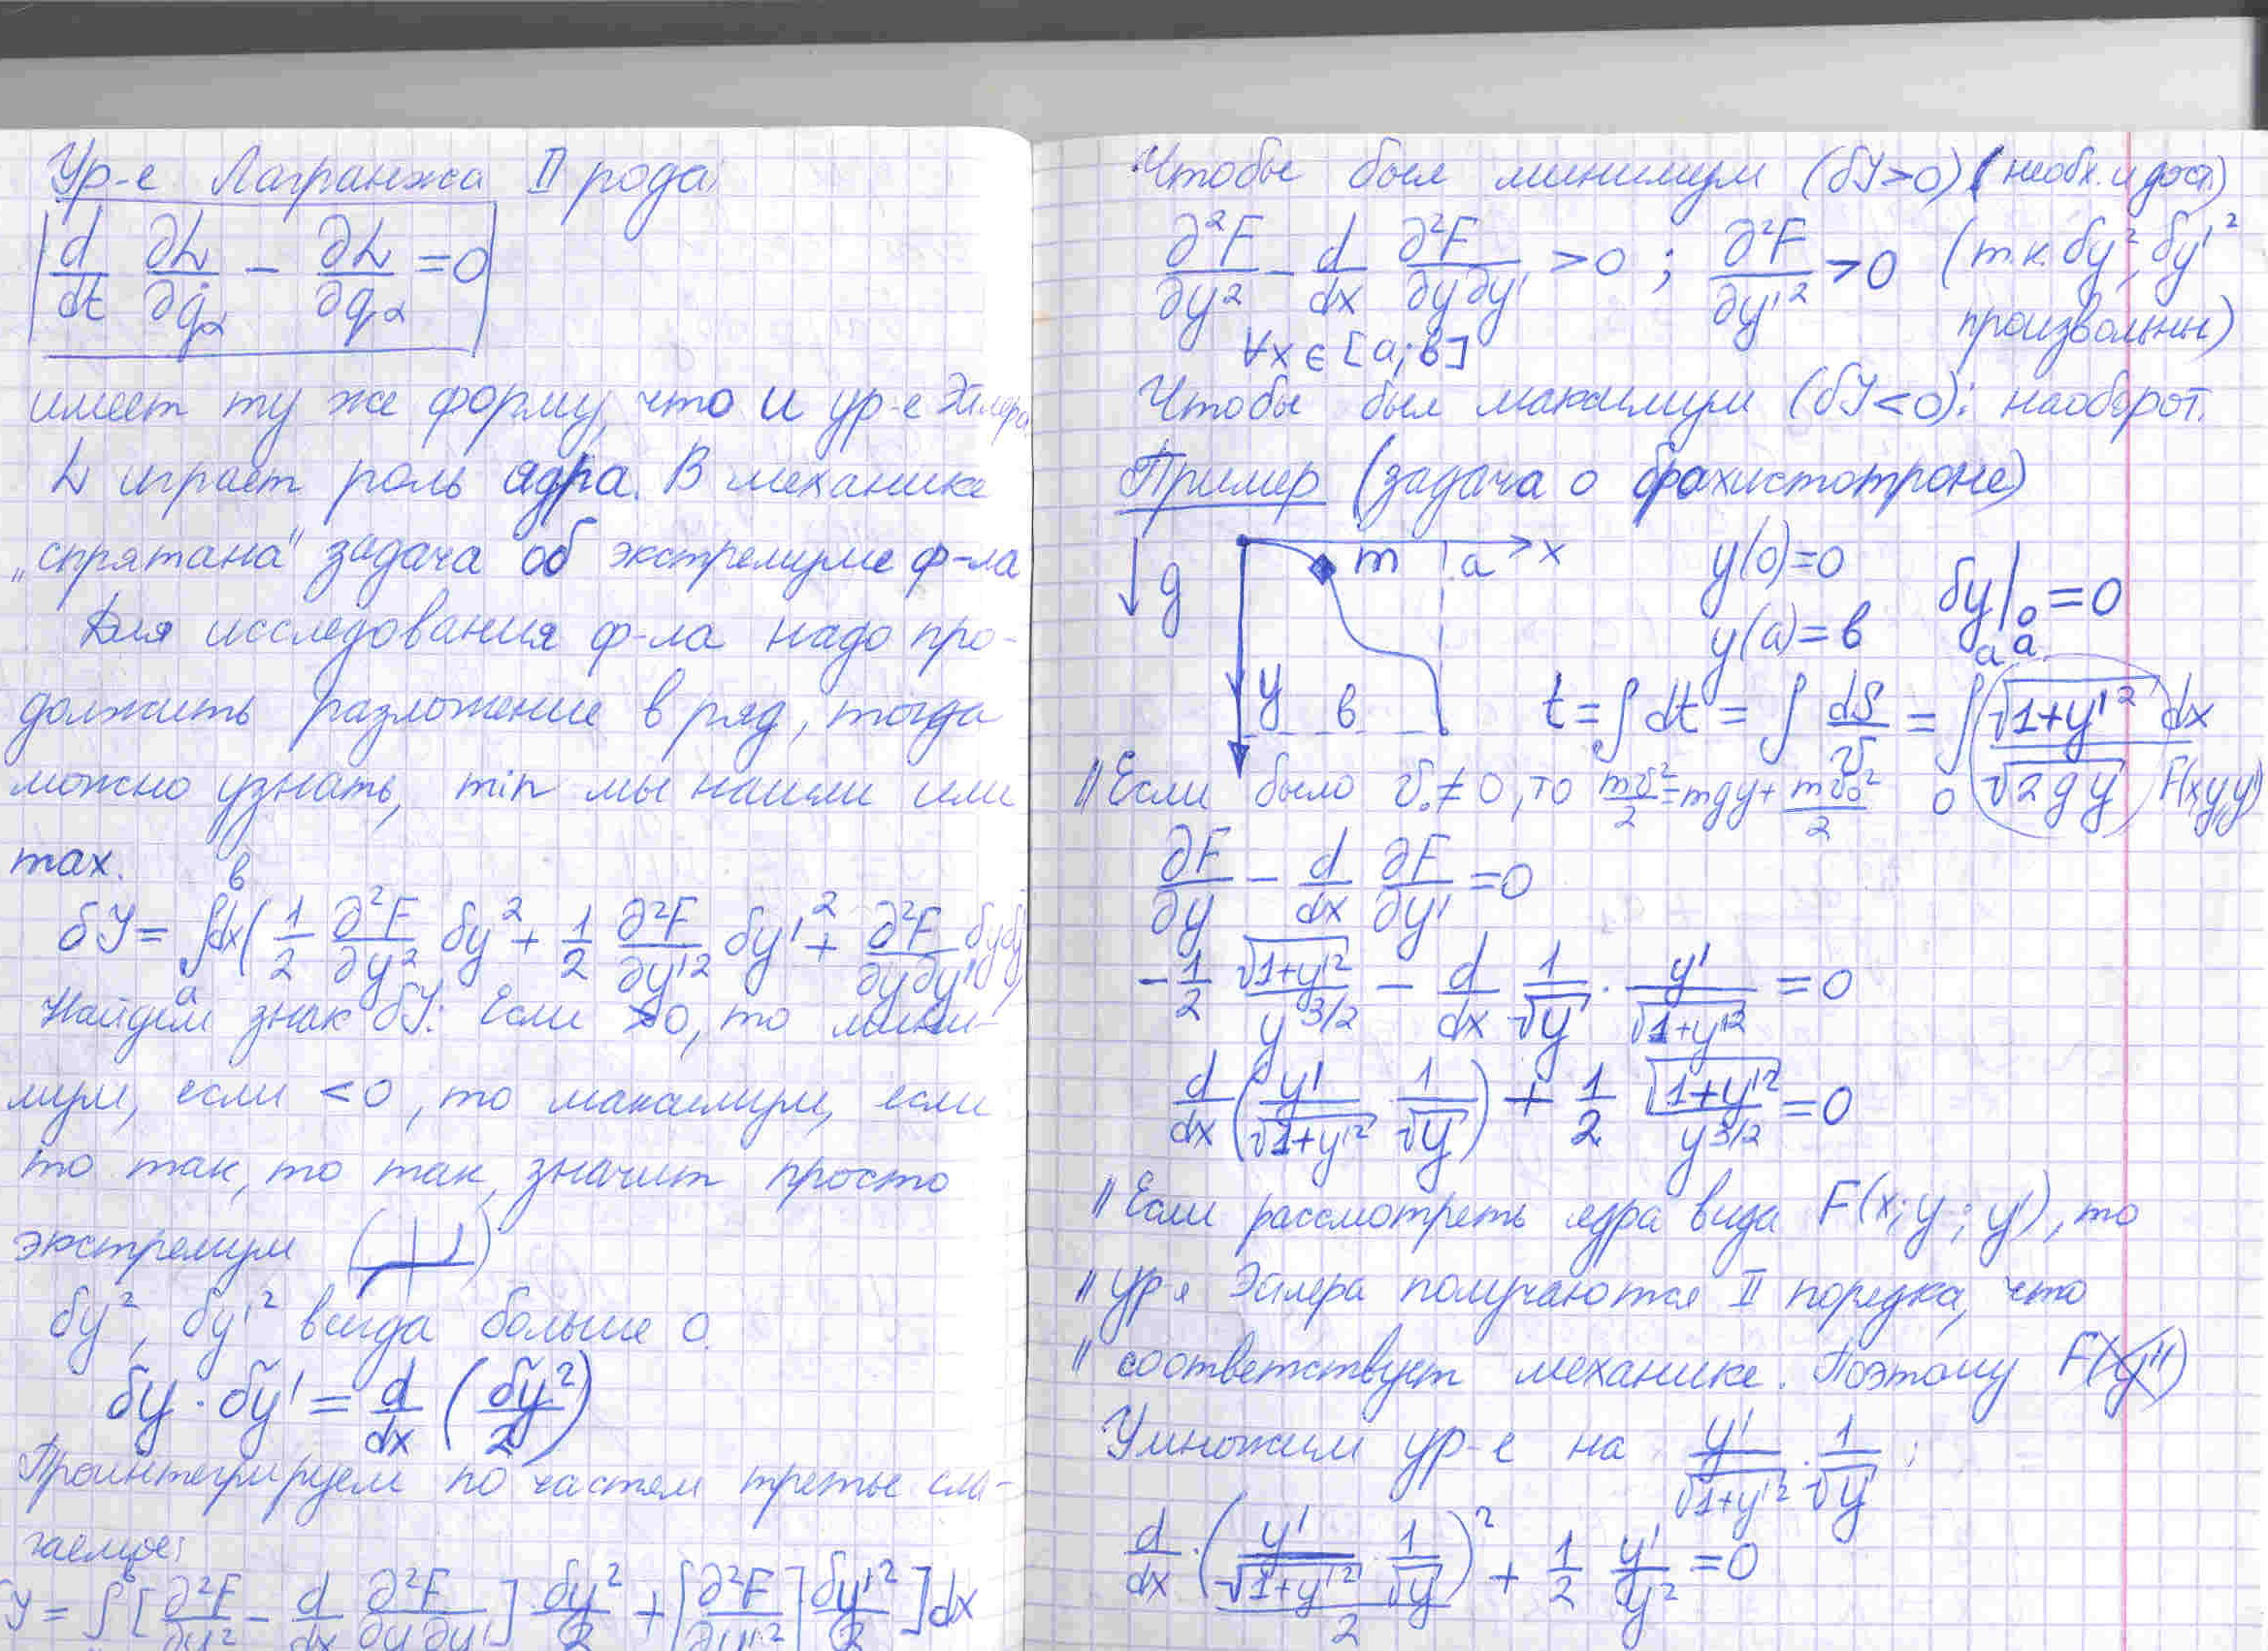 Ур-е Лагранжа II рода:
d/dt ∂L/∂q̇α − ∂L/∂qα = 0
имеет ту же форму, что и ур-е Эйлера
L играет роль ядра. В механике
„спрятана" задача об экстремуме ф-ла
Для исследования ф-ла надо про-
должить разложение в ряд, тогда
можно узнать, min мы нашли или
max.
δY = ∫ₐᵇ dx (1/2 ∂²F/∂y² δy² + 1/2 ∂²F/∂y'² δy'² + ∂²F/∂y∂y' δyδy')
Найдём знак δY: Если >0, то мини-
мум, если <0, то максимум, если
то так, то так, значит просто
экстремум ( )
δy², δy'² всегда больше 0.
δy · δy' = d/dx (δy²/2)
Проинтегрируем по частям третье сла-
гаемое:
δY = ∫ᵇ [∂²F/∂y² − d/dx ∂²F/∂y∂y'] δy²/2 + [∂²F/∂y'²] δy'²/2 ] dx
Чтобы был минимум (δY>0) (необх. и дост.)
∂²F/∂y² − d/dx ∂²F/∂y∂y' > 0 ; ∂²F/∂y'² > 0 (т.к. δy², δy'²
произвольны)
∀x ∈ [a; в]
Чтобы был максимум (δY<0): наоборот.
Пример (задача о брахистотроне)
g m a x y в
y(0)=0
y(a)=в
δy|₀,ₐ = 0
t = ∫dt = ∫ dS/v = ∫₀ᵃ √(1+y'²)/√(2gy) dx F(x,y,y')
// Если было v₀ ≠ 0, то mv²/2 = mgy + mv₀²/2
∂F/∂y − d/dx ∂F/∂y' = 0
−1/2 √(1+y'²)/y^(3/2) − d/dx 1/√y · y'/√(1+y'²) = 0
d/dx (y'/√(1+y'²) 1/√y) + 1/2 √(1+y'²)/y^(3/2) = 0
// Если рассмотреть ядра вида F(x; y; y'), то
// ур-я Эйлера получаются II порядка, что
// соответствует механике. Поэтому F(y'')
Умножим ур-е на y'/√(1+y'²) · 1/√y ;
d/dx · (y'/√(1+y'²) · 1/√y)²/2 + 1/2 y'/y² = 0